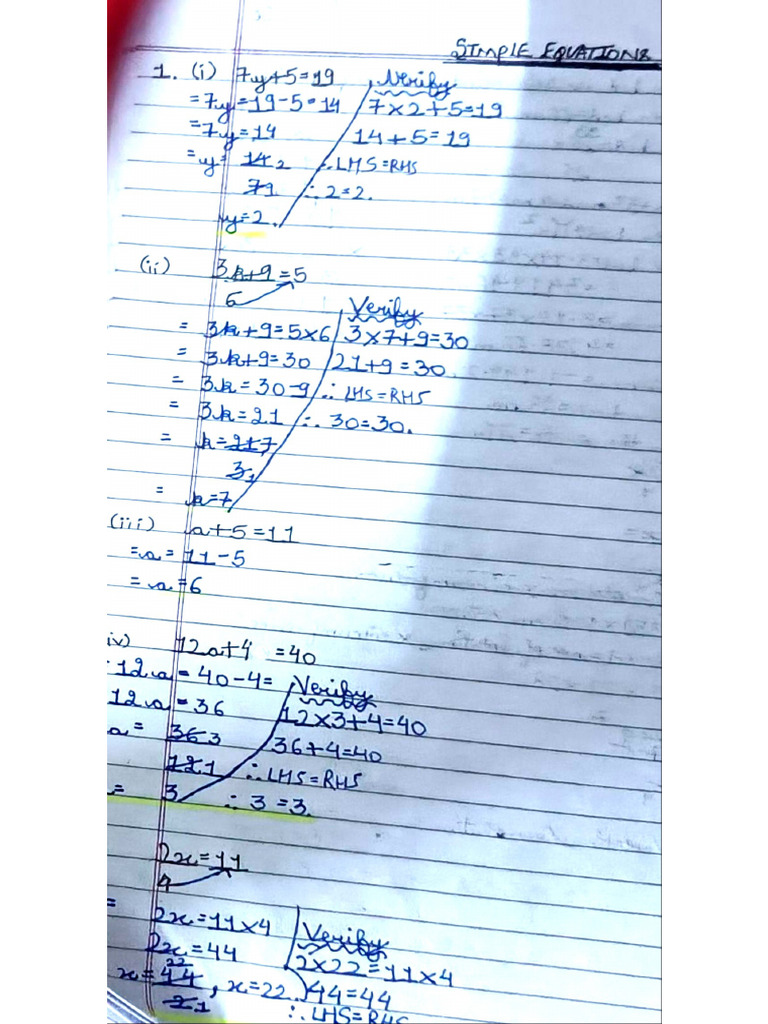 SIMPLE EQUATIONS
1. (i) 7y+5=19
=7y=19-5=14
=7y=14
=y= 14 2
7 1
y=2.
Verify
7×2+5=19
14+5=19
∴LHS=RHS
∴2=2.
(ii) 3k+9=5
6
= 3k+9=5×6
= 3k+9=30
= 3k=30-9
= 3k=21
= k=21 7
3 1
= k=7
Verify
3×7+9=30
21+9=30
∴ LHS=RHS
∴ 30=30.
(iii) a+5=11
=a=11-5
=a=6
iv) 12a+4 =40
12a=40-4=
12a=36
a= 36 3
12 1
= 3
Verify
12×3+4=40
36+4=40
∴LHS=RHS
∴ 3=3.
2x=11
4
= 2x=11×4
2x=44
22
x=44, x=22
2 1
Verify
2×22=11×4
44=44
∴LHS=RHS